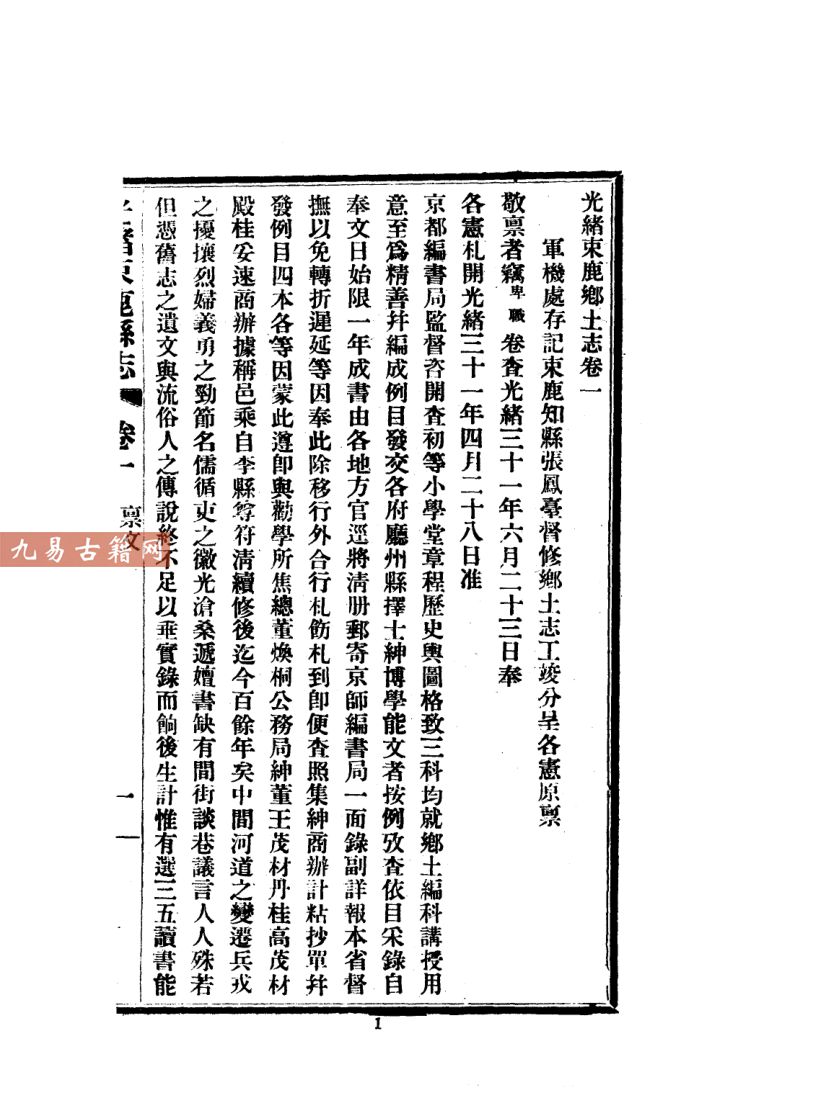 光緒束鹿鄉土志卷一
軍機處存記束鹿知縣張鳳臺督修鄉土志工竣分呈各憲原稟
敬稟者竊卑職卷查光緒三十一年六月二十三日奉
各憲札開光緒三十一年四月二十八日准
京都編書局監督咨開查初等小學堂章程歷史輿圖格致三科均就鄉土編科講授用
意至爲精善幷編成例目發交各府廳州縣擇士紳博學能文者按例攷查依目采錄自
奉文日始限一年成書由各地方官逕將清册郵寄京師編書局一面錄副詳報本省督
撫以免轉折遲延等因奉此除移行外合行札飭札到卽便查照集紳商辦計粘抄單幷
發例目四本各等因蒙此遵卽與勸學所焦總董煥桐公務局紳董王茂材丹桂高茂材
殿桂妥速商辦據稱邑乘自李縣尊符清續修後迄今百餘年矣中間河道之變遷兵戎
之擾攘烈婦義勇之勁節名儒循吏之徽光滄桑遞嬗書缺有間街談巷議言人人殊若
但憑舊志之遺文與流俗人之傳說終不足以垂實錄而餉後生計惟有選三五讀書能
光緒束鹿縣志 卷一 稟文 一
九易古籍网
1